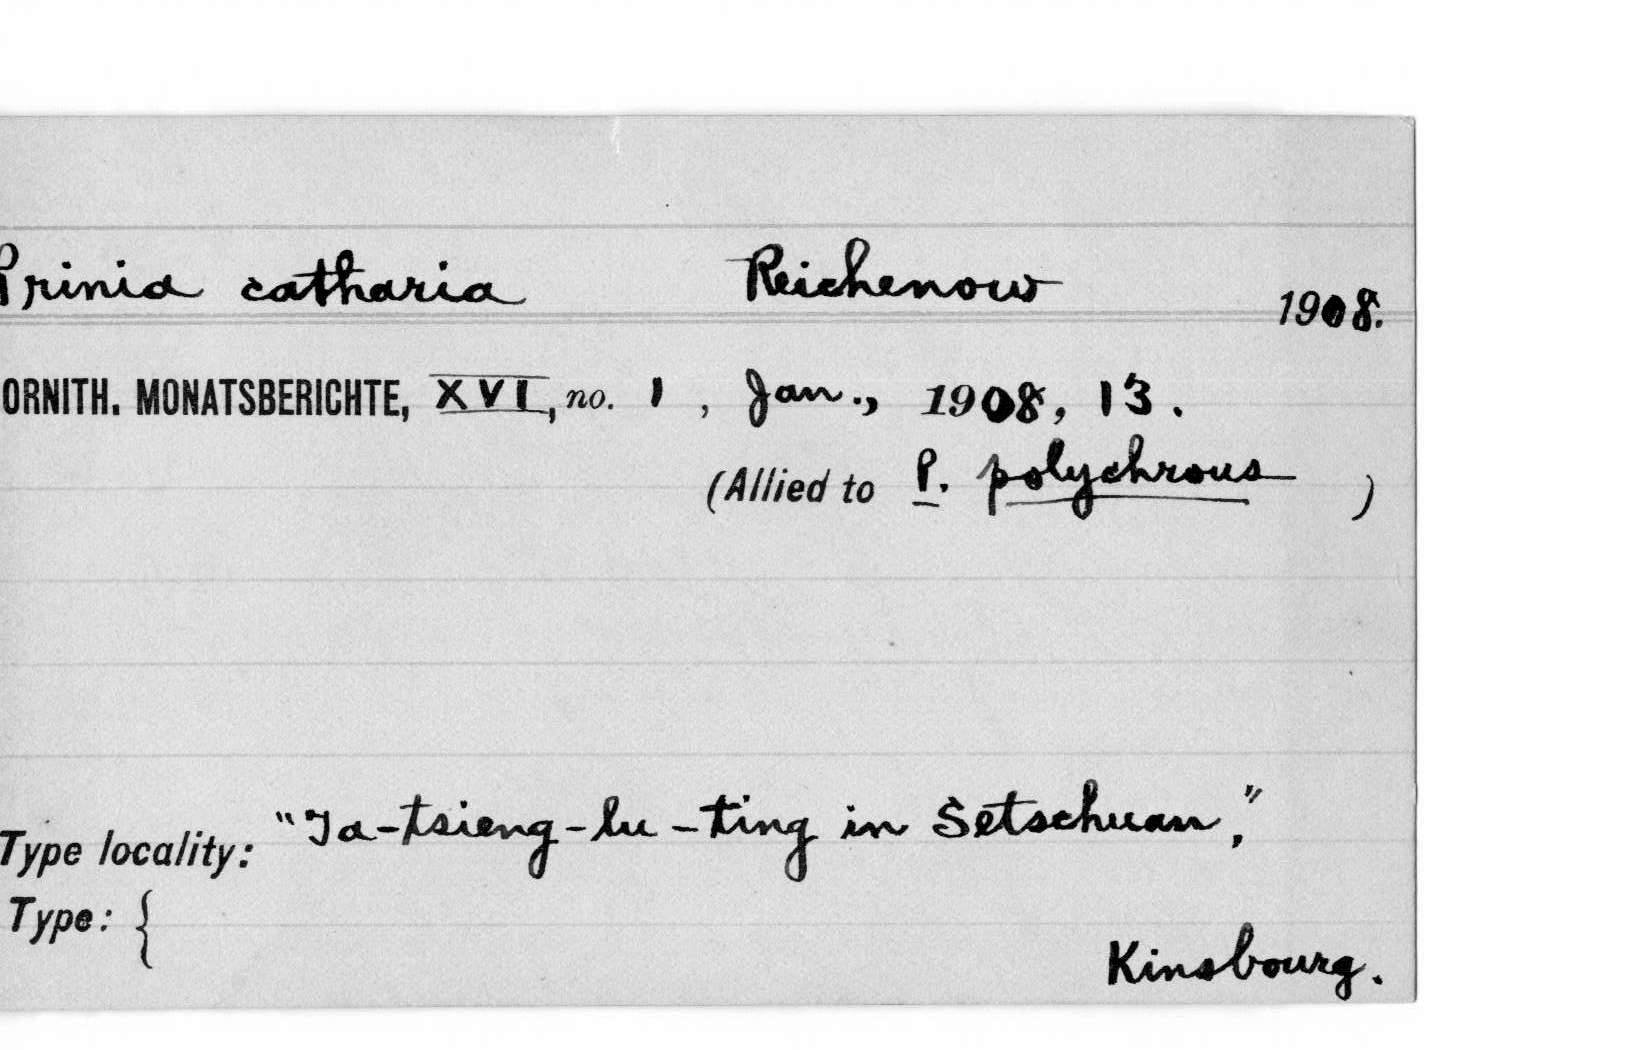 Prinia catharia Reichenow 1908.
ORNITH. MONATSBERICHTE, XVI, no. 1, Jan., 1908, 13.
(Allied to P. polychrous )
Type locality: "Ta-tsieng-lu-ting in Setschuan,"
Type: {
Kinsbourg.